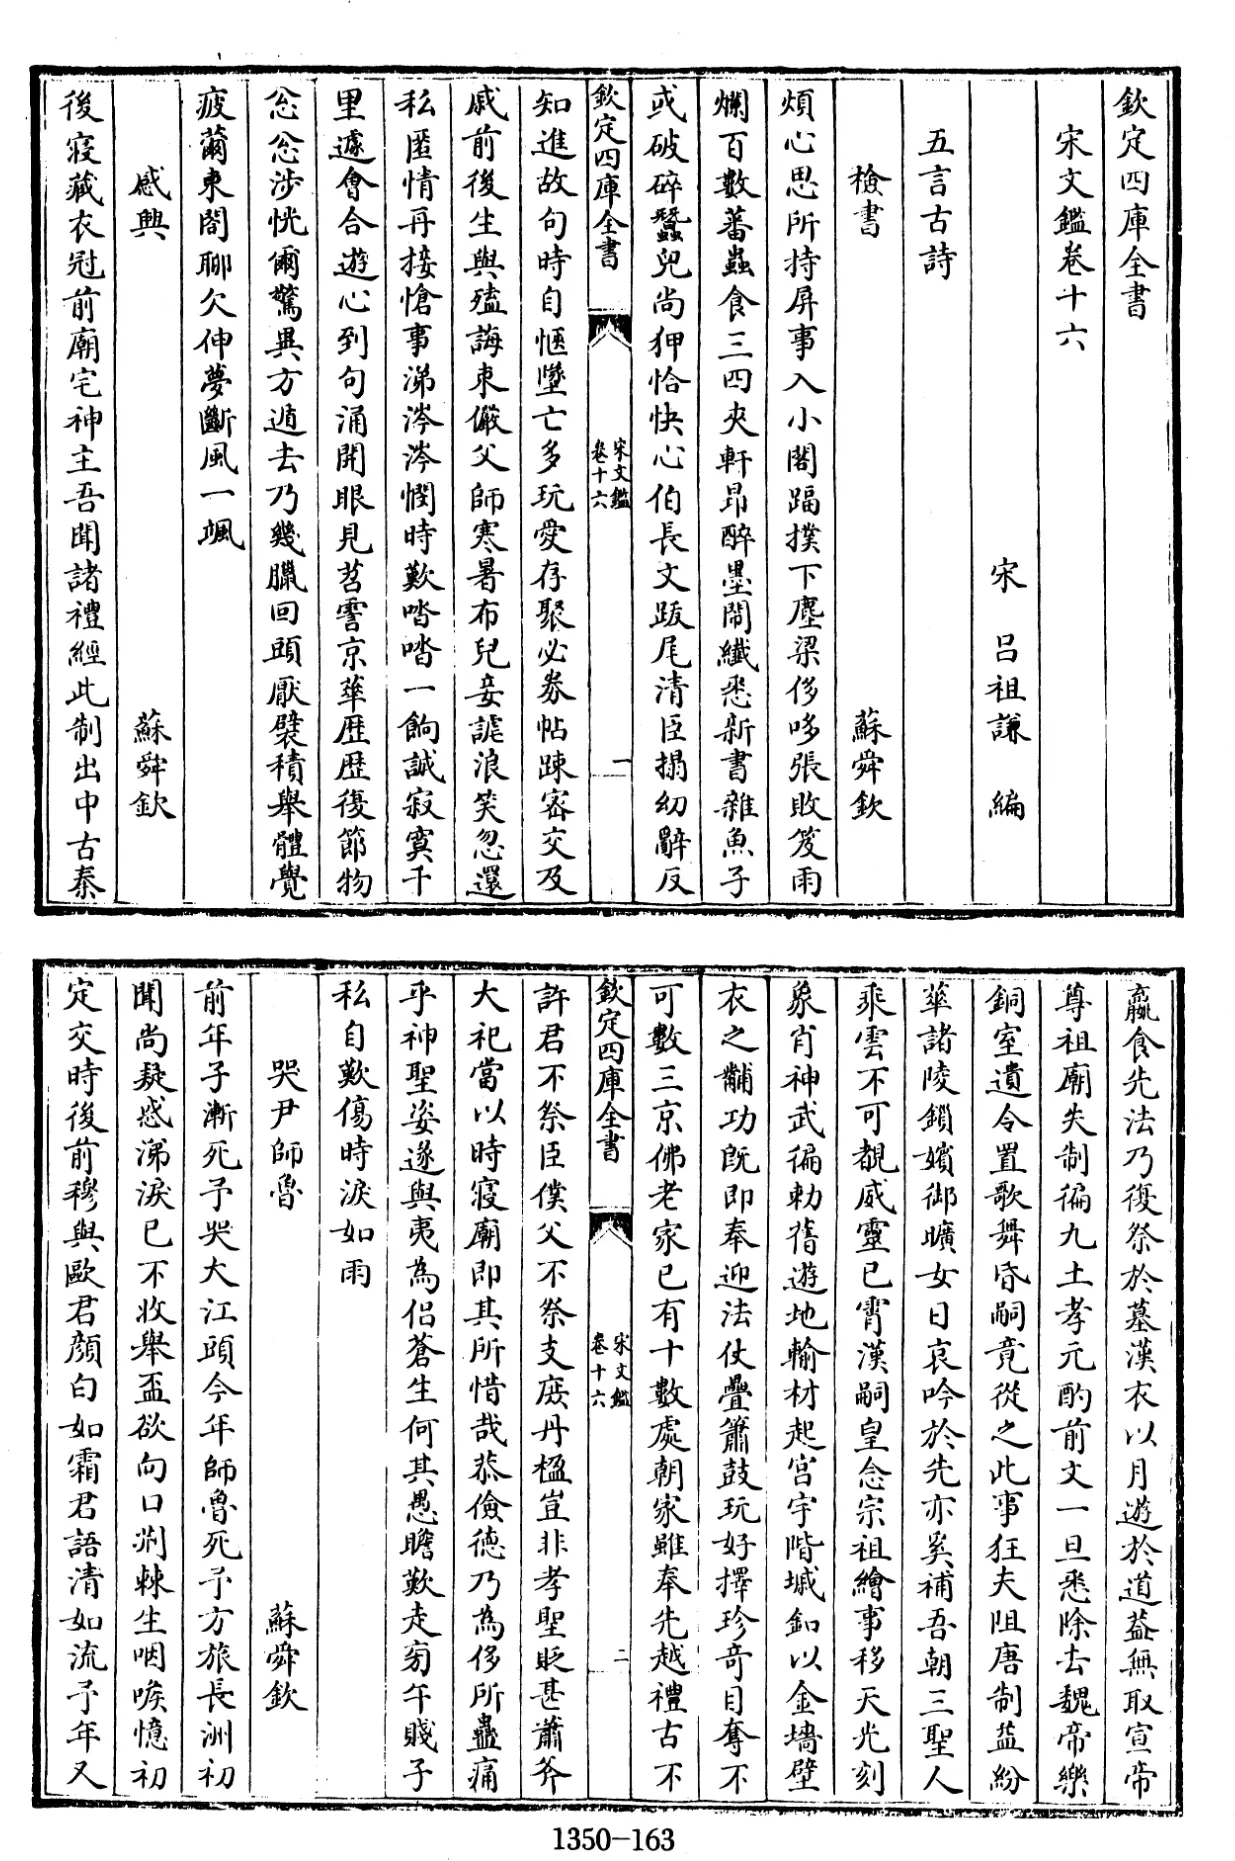 欽定四庫全書
宋文鑑卷十六
宋　呂祖謙　編
五言古詩
檢書　蘇舜欽
煩心思所持屏事入小閣蹋撲下塵梁侈哆張敗笈雨
爛百數蕃蟲食三四夾軒昻醉墨閙纎悉新書雜魚子
或破碎蠶兒尚狎恰快心伯長文跋尾清臣搨幼辭反
欽定四庫全書
宋文鑑
卷十六
一
知進故句時自愜墜亡多玩愛存聚必劵帖踈宻交及
戚前後生與殪誨束儼父師寒暑布兒妾謔浪笑忽還
私匿情再接愴事涕涔涔憫時歎喈喈一餉誠寂寞千
里遽會合遊心到句涌開眼見苕霅京華歴歴復節物
忩忩涉恍爾驚異方遁去乃幾臘回頭厭襞積舉體覺
疲薾東閤聊欠伸夢斷風一颯
感興　蘇舜欽
後寢藏衣冠前廟宅神主吾聞諸禮經此制出中古秦
嬴食先法乃復祭於墓漢衣以月遊於道葢無取宣帝
尊祖廟失制徧九土孝元酌前文一旦悉除去魏帝樂
銅室遺令置歌舞昏嗣竟從之此事狂夫阻唐制益紛
華諸陵鎖嬪御曠女日哀吟於先亦奚補吾朝三聖人
乘雲不可覩威靈已霄漢嗣皇念宗祖繪事移天光刻
象肖神武徧勅舊遊地輸材起宫宇階墄釦以金墻壁
衣之黼功既即奉迎法仗疊簫鼓玩好擇珍奇目奪不
可數三京佛老家已有十數處朝家雖奉先越禮古不
欽定四庫全書
宋文鑑
卷十六
二
許君不祭臣僕父不祭支庶丹楹豈非孝聖貶甚蕭斧
大祀當以時寢廟即其所惜哉恭儉德乃為侈所蠱痛
乎神聖姿遂與夷為侣蒼生何其愚瞻歎走旁午賤子
私自歎傷時淚如雨
哭尹師魯　蘇舜欽
前年子漸死予哭大江頭今年師魯死予方旅長洲初
聞尚疑惑涕淚已不收舉盃欲向口荆棘生咽喉憶初
定交時後前穆與歐君顔白如霜君語清如流予年又
1350-163